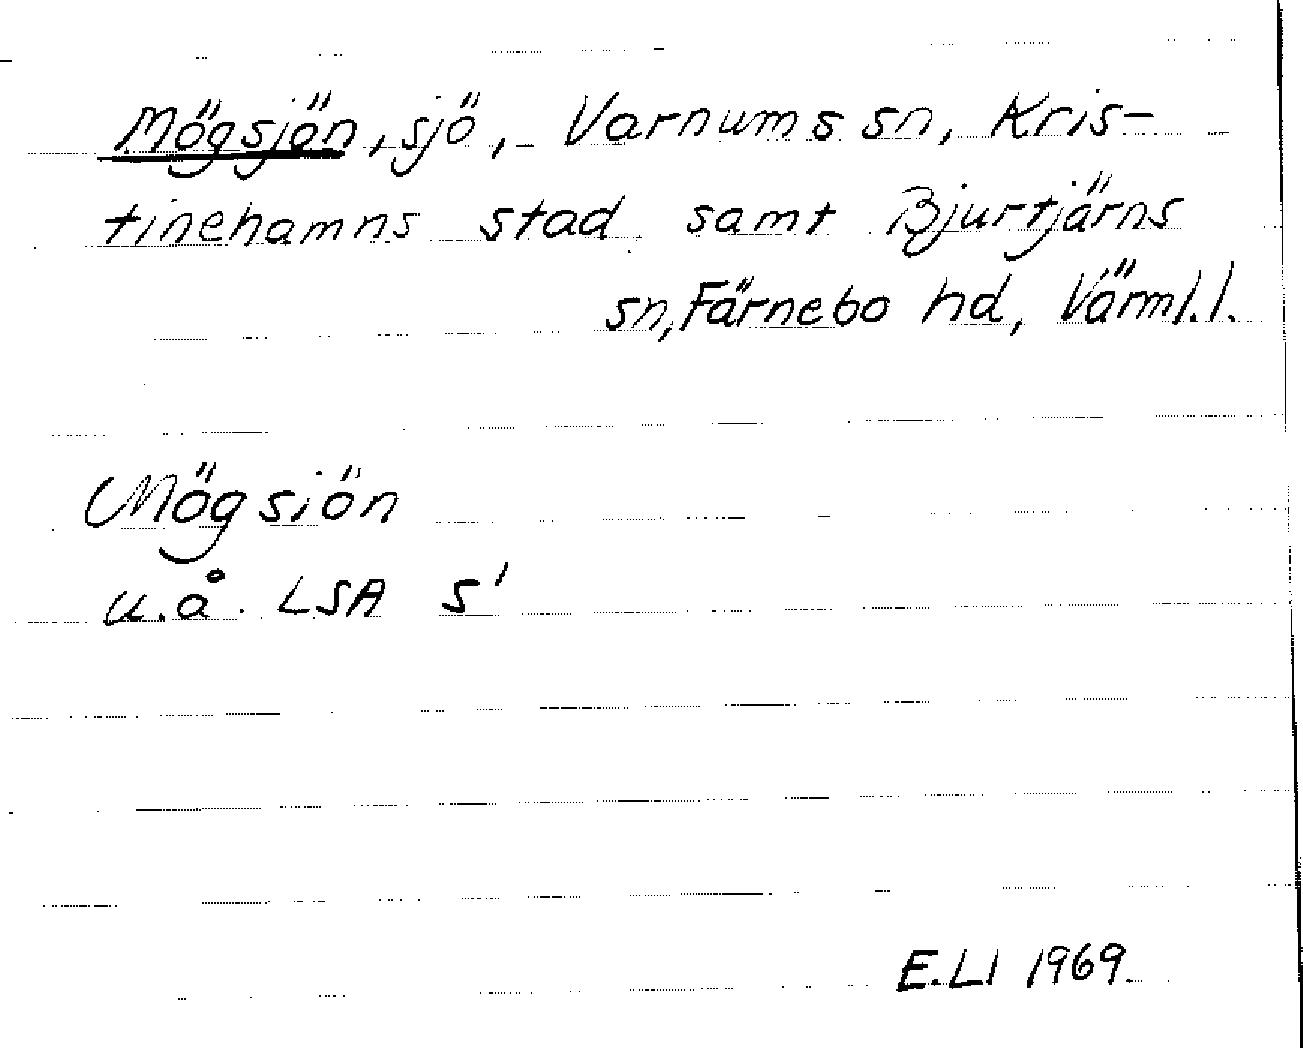 Mögsjön, sjö, Varnums sn, Kris-
tinehamns stad samt Bjurtjärns
sn, Färnebo hd, Värml.l.
Mögsiön
u.å. LSA S'
E.Ll 1969